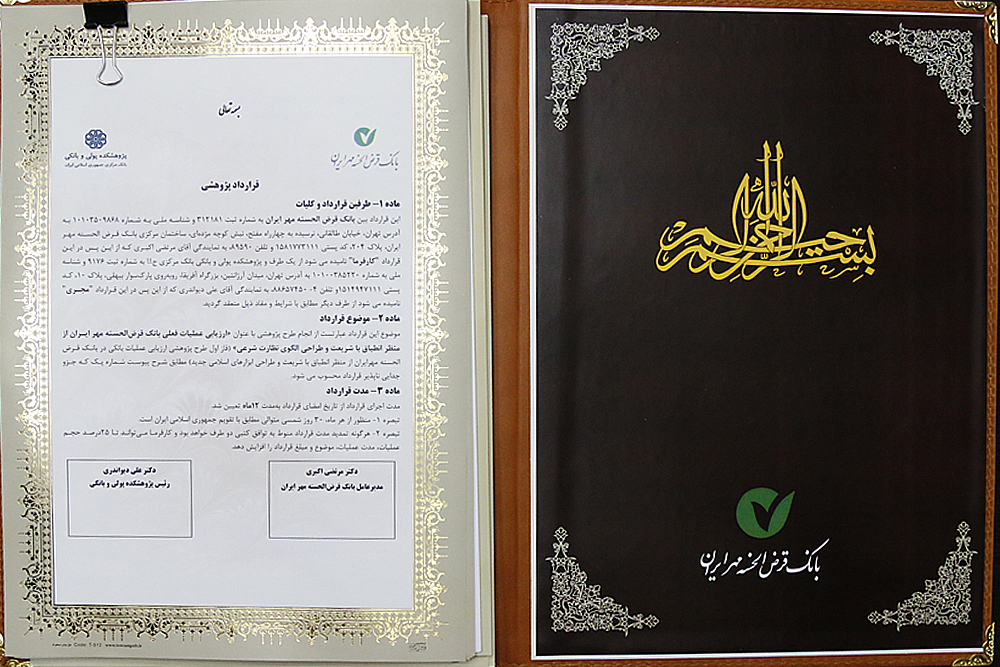 بسمه تعالی
بانک قرض الحسنه مهر ایران
پژوهشکده پولی و بانکی
بانک مرکزی جمهوری اسلامی ایران
قرارداد پژوهشی
ماده ۱- طرفین قرارداد و کلیات
این قرارداد بین بانک قرض الحسنه مهر ایران به شماره ثبت ۳۱۲۱۸۱ و شناسه ملی به شماره ۱۰۱۰۳۵۰۹۸۶۸ به
آدرس تهران، خیابان طالقانی، نرسیده به چهارراه مفتح، نبش کوچه مژده‌ای، ساختمان مرکزی بانک قرض الحسنه مهر
ایران، پلاک ۲۰۴، کد پستی ۱۵۸۱۷۷۳۱۱۱ و تلفن ۸۹۵۹۰ به نمایندگی آقای مرتضی اکبری که از این پس در این
قرارداد "کارفرما" نامیده می شود از یک طرف و پژوهشکده پولی و بانکی بانک مرکزی ج.ا.ا به شماره ثبت ۹۱۷۶ و شناسه
ملی به شماره ۱۰۱۰۰۳۸۵۲۲۰ به آدرس تهران، میدان آرژانتین، بزرگراه آفریقا، روبه‌روی پارک‌سوار بیهقی، پلاک ۱۰، کد
پستی ۱۵۱۴۹۴۷۱۱۱ و تلفن ۴-۸۸۶۵۷۴۵۰، به نمایندگی آقای علی دیواندری که از این پس در این قرارداد "مجری"
نامیده می شود از طرف دیگر مطابق با شرایط و مفاد ذیل منعقد گردید.
ماده ۲- موضوع قرارداد
موضوع این قرارداد عبارتست از انجام طرح پژوهشی با عنوان «ارزیابی عملیات فعلی بانک قرض‌الحسنه مهر ایران از
منظر انطباق با شریعت و طراحی الگوی نظارت شرعی» (فاز اول طرح پژوهشی ارزیابی عملیات بانکی در بانک قرض
الحسنه مهرایران از منظر انطباق با شریعت و طراحی ابزارهای اسلامی جدید) مطابق شرح پیوست شماره یک که جزو
جدایی ناپذیر قرارداد محسوب می شود.
ماده ۳- مدت قرارداد
مدت اجرای قرارداد از تاریخ امضای قرارداد به‌مدت ۱۲ماه تعیین شد.
تبصره ۱- منظور از هر ماه، ۳۰ روز شمسی متوالی مطابق با تقویم جمهوری اسلامی ایران است.
تبصره ۲- هرگونه تمدید مدت قرارداد منوط به توافق کتبی دو طرف خواهد بود و کارفرما می‌تواند تا ۲۵درصد حجم
عملیات، مدت عملیات، موضوع و مبلغ قرارداد را افزایش دهد.
دکتر مرتضی اکبری
مدیرعامل بانک قرض‌الحسنه مهر ایران
دکتر علی دیواندری
رئیس پژوهشکده پولی و بانکی
بسم الله الرحمن الرحیم
بانک قرض الحسنه مهر ایران